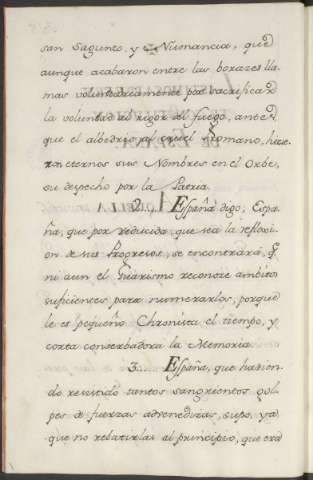 san Sagunto, y Numancia, que
aunque acabaron entre las borazes lla-
mas voluntariamente por sacrificar
la voluntad al rigor del fuego, antes
que el albedrio al cruel Romano, hizie-
ron eternos sus Nombres en el Orbe,
su despecho por la Patria.
2. España digo, Espa-
ña, que por reducida, que sea la reflexi-
on de sus Progresos, se encontrará, q.
ni aun el Guarismo reconoze ambitos
suficientes para numerarlos, porque
le es pequeño Chronista el tiempo, y
corta conserbadora la Memoria.
3. España, que havien-
do resistido tantos sangrientos gol-
pes de fuerzas advenedizas, supo, ya
que no relatirlas al principio, que era